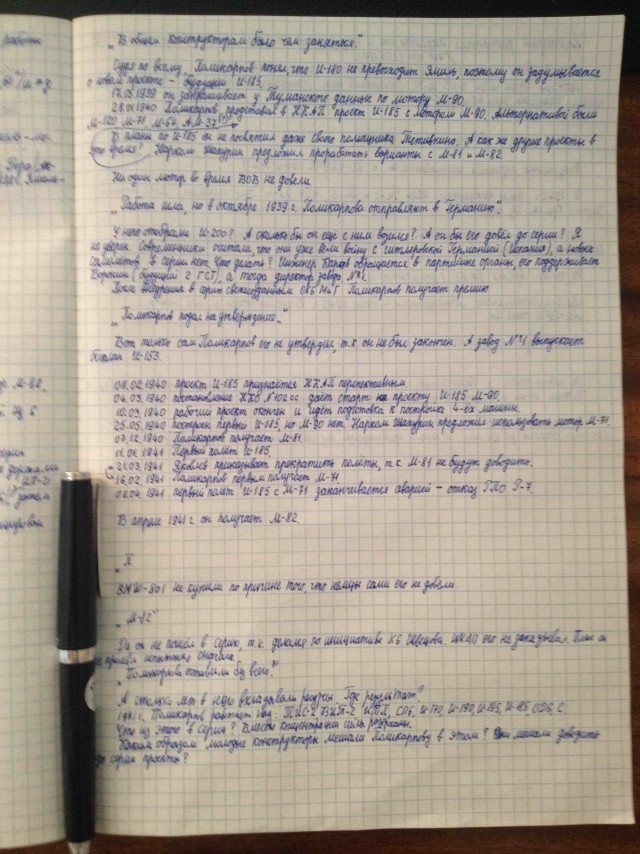 работы
"В общем конструкторам было чем заняться."
Судя по всему, Поликарпов понял, что И-180 не превосходит Эмиль, поэтому он задумывается
о новом проекте - будущий И-185.
17.05.1939 он запрашивает у Туманского данные по мотору М-90.
28.01.1940 Поликарпов представил в НКАП проект И-185 с мотором М-90. Альтернативой были
М-120, М-71, М-64, АМ-37
В планы по И-185 он не посвятил даже своего помощника Тетивкина. А как же другие проекты в
это время? Нарком Шахурин предложил проработать варианты с М-81 и М-82.
Ни один мотор во время ВОВ не довели.
"Работа шла, но в октябре 1939 г. Поликарпова отправляют в Германию".
У него отобрали И-200? А сколько бы он ещё с ним возился? А он бы его довёл до серии? Я
не уверен. Современники считали, что они уже вели войну с гитлеровской Германией (Испания), а новых
самолётов в серии нет. Что делать? Инженер обращается в партийные органы, его поддерживает
Воронин (будущий 2 ГСТ), а тогда директор завода №1.
После внедрения в серию Поликарпов получает премию
"Поликарпов подал на утверждение."
Вот только сам Поликарпов его не утвердил, т.к. он не был закончен. А завод №1 выпускает
бипланы И-153.
08.02.1940 проект И-185 признаётся НКАП перспективным.
04.03.1940 постановление НКО №102сс даёт старт проекту И-185 М-90.
10.03.1940 рабочий проект окончен и идёт подготовка к постройке 4-ех машин.
25.05.1940 построен первый И-185, но М-90 нет. Нарком Шахурин предложил использовать мотор М-71.
07.12.1940 Поликарпов получает М-81.
11.01.1941 Первый полёт И-185.
21.03.1941 Яковлев приказывает прекратить полёты, т.к. М-81 не будут доводить.
16.02.1941 Поликарпов первым получает М-71.
08.04.1941 первый полёт И-185 с М-71 заканчивается аварией - отказ
В апреле 1941 г. он получает М-82.
BMW-801 не купили по причине того, что немцы сами его не довели.
"М-82"
Да он не пошёл в серию, т.к. делался по инициативе КБ Швецова. НКАП его не заказывал. Плюс он
не прошёл испытания сначала.
"Поликарпова оставили без всего."
А столько лет в него вкладывали ресурсы. Где результат?
1941 г. Поликарпов работает над: ТИС-2, И-170, И-190, И-195, И-185, ОДБ,
Что из этого в серии? Вместо концентрации силы разорваны.
Каким образом молодые конструкторы мешали Поликарпову в этом? Они мешали доводить
до серии проекты?